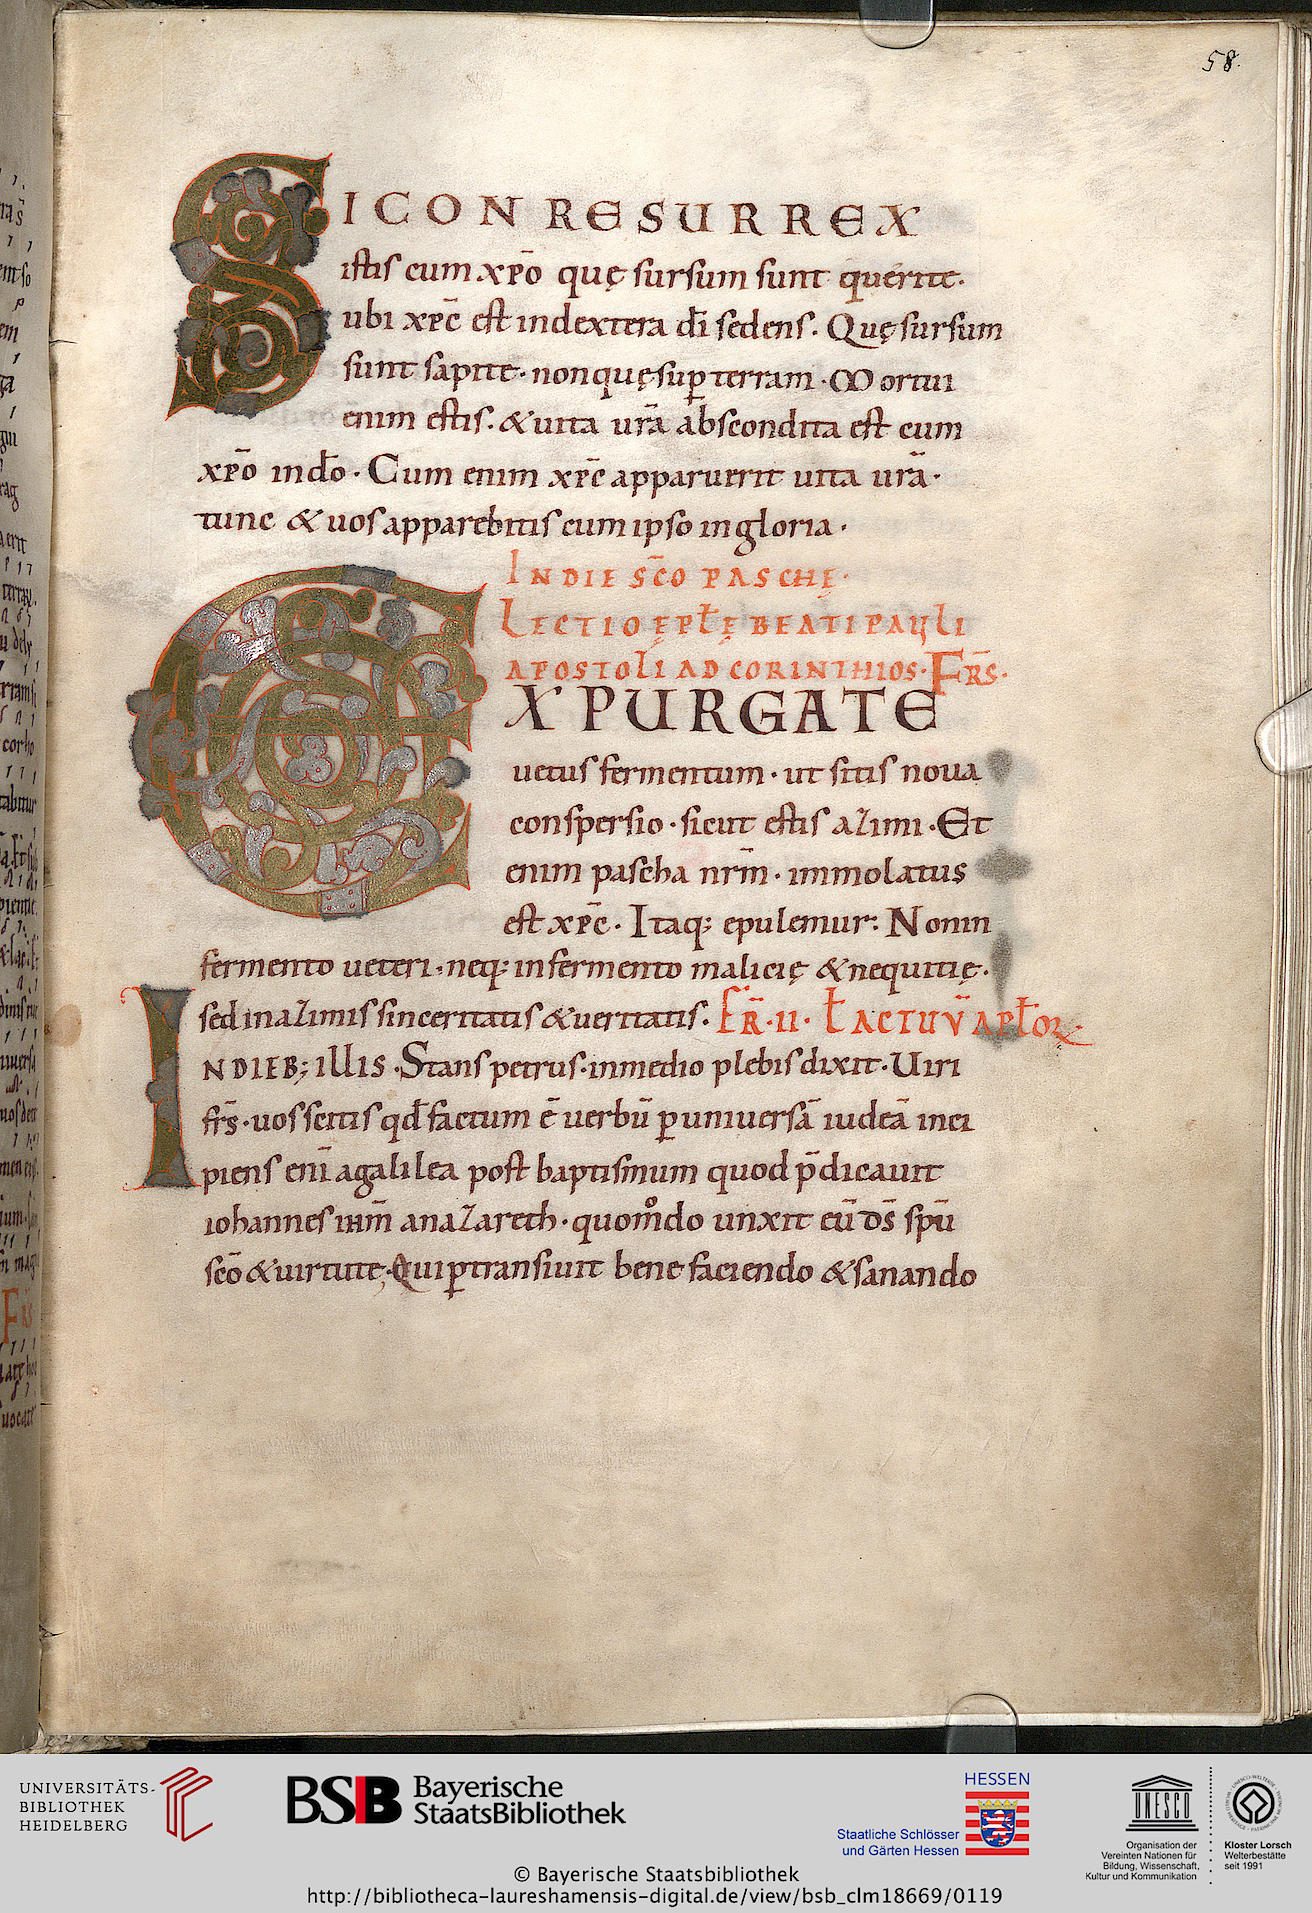 58.
SI CON RESURREX
istis cum xp̄o quę sursum sunt querite.
ubi xp̄c est indextera dī sedens. Quę sursum
sunt sapite. non quę sup̱ terram. Mortui
enim estis. & uita ur̄a abscondita est cum
xp̄o in dō. Cum enim xp̄c apparuerit uita ur̄a.
tunc & uos apparebitis cum ipso in gloria.
IN DIE SC̄O PASCHĘ.
LECTIO ĘPŁĘ BEATI PAULI
APOSTOLI AD CORINTHIOS. FR̄S.
EXPURGATE
uetus fermentum. ut sitis noua
conspersio. sicut estis azimi. Et
enim pascha nrm̄. immolatus
est xp̄c. Itaq; epulemur. Non in
fermento ueteri. neq; in fermento malicię & nequitię.
sed in azimis sinceritatis & ueritatis. FR̄. II. Ł ACTUŪ APŁOR
IN DIEB; ILLIS. Stans petrus. in medio plebis dixit. Uiri
fr̄s. uos scitis qd̄ factum ē uerbū p̱ uniuersā iudeā inci
piens enī a galilea post baptismum quod p̄dicauit
iohannes ihm̄ a nazareth. quomodo unxit eū ds̄ spū
scō & uirtute. Qui p̱transiuit bene faciendo & sanando
UNIVERSITÄTS-
BIBLIOTHEK
HEIDELBERG
BSB Bayerische
StaatsBibliothek
HESSEN
Staatliche Schlösser
und Gärten Hessen
UNESCO
Organisation der
Vereinten Nationen für
Bildung, Wissenschaft,
Kultur und Kommunikation
Kloster Lorsch
Welterbestätte
seit 1991
© Bayerische Staatsbibliothek
http://bibliotheca-laureshamensis-digital.de/view/bsb_clm18669/0119